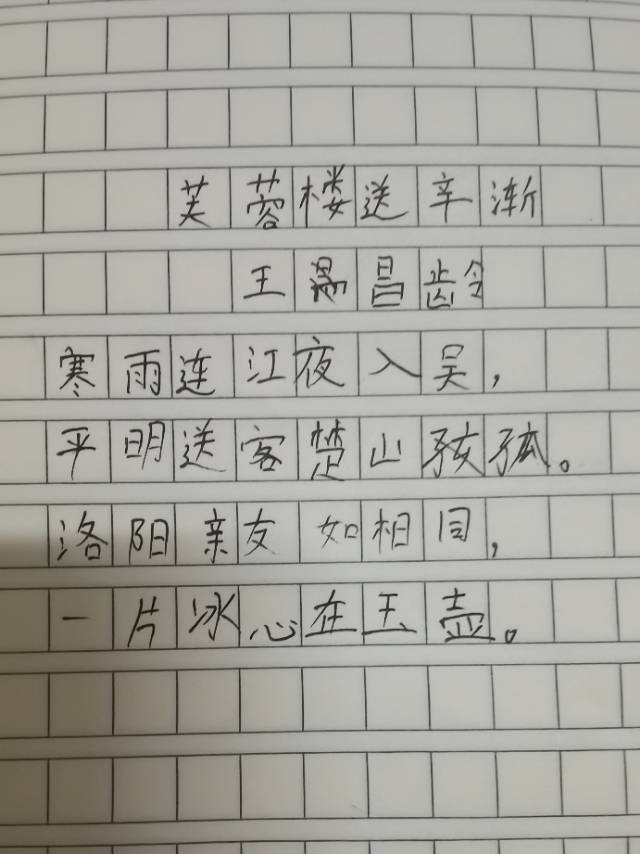 芙蓉楼送辛渐
王昌龄
寒雨连江夜入吴，
平明送客楚山孩孤。
洛阳亲友如相同，
一片冰心在玉壶。